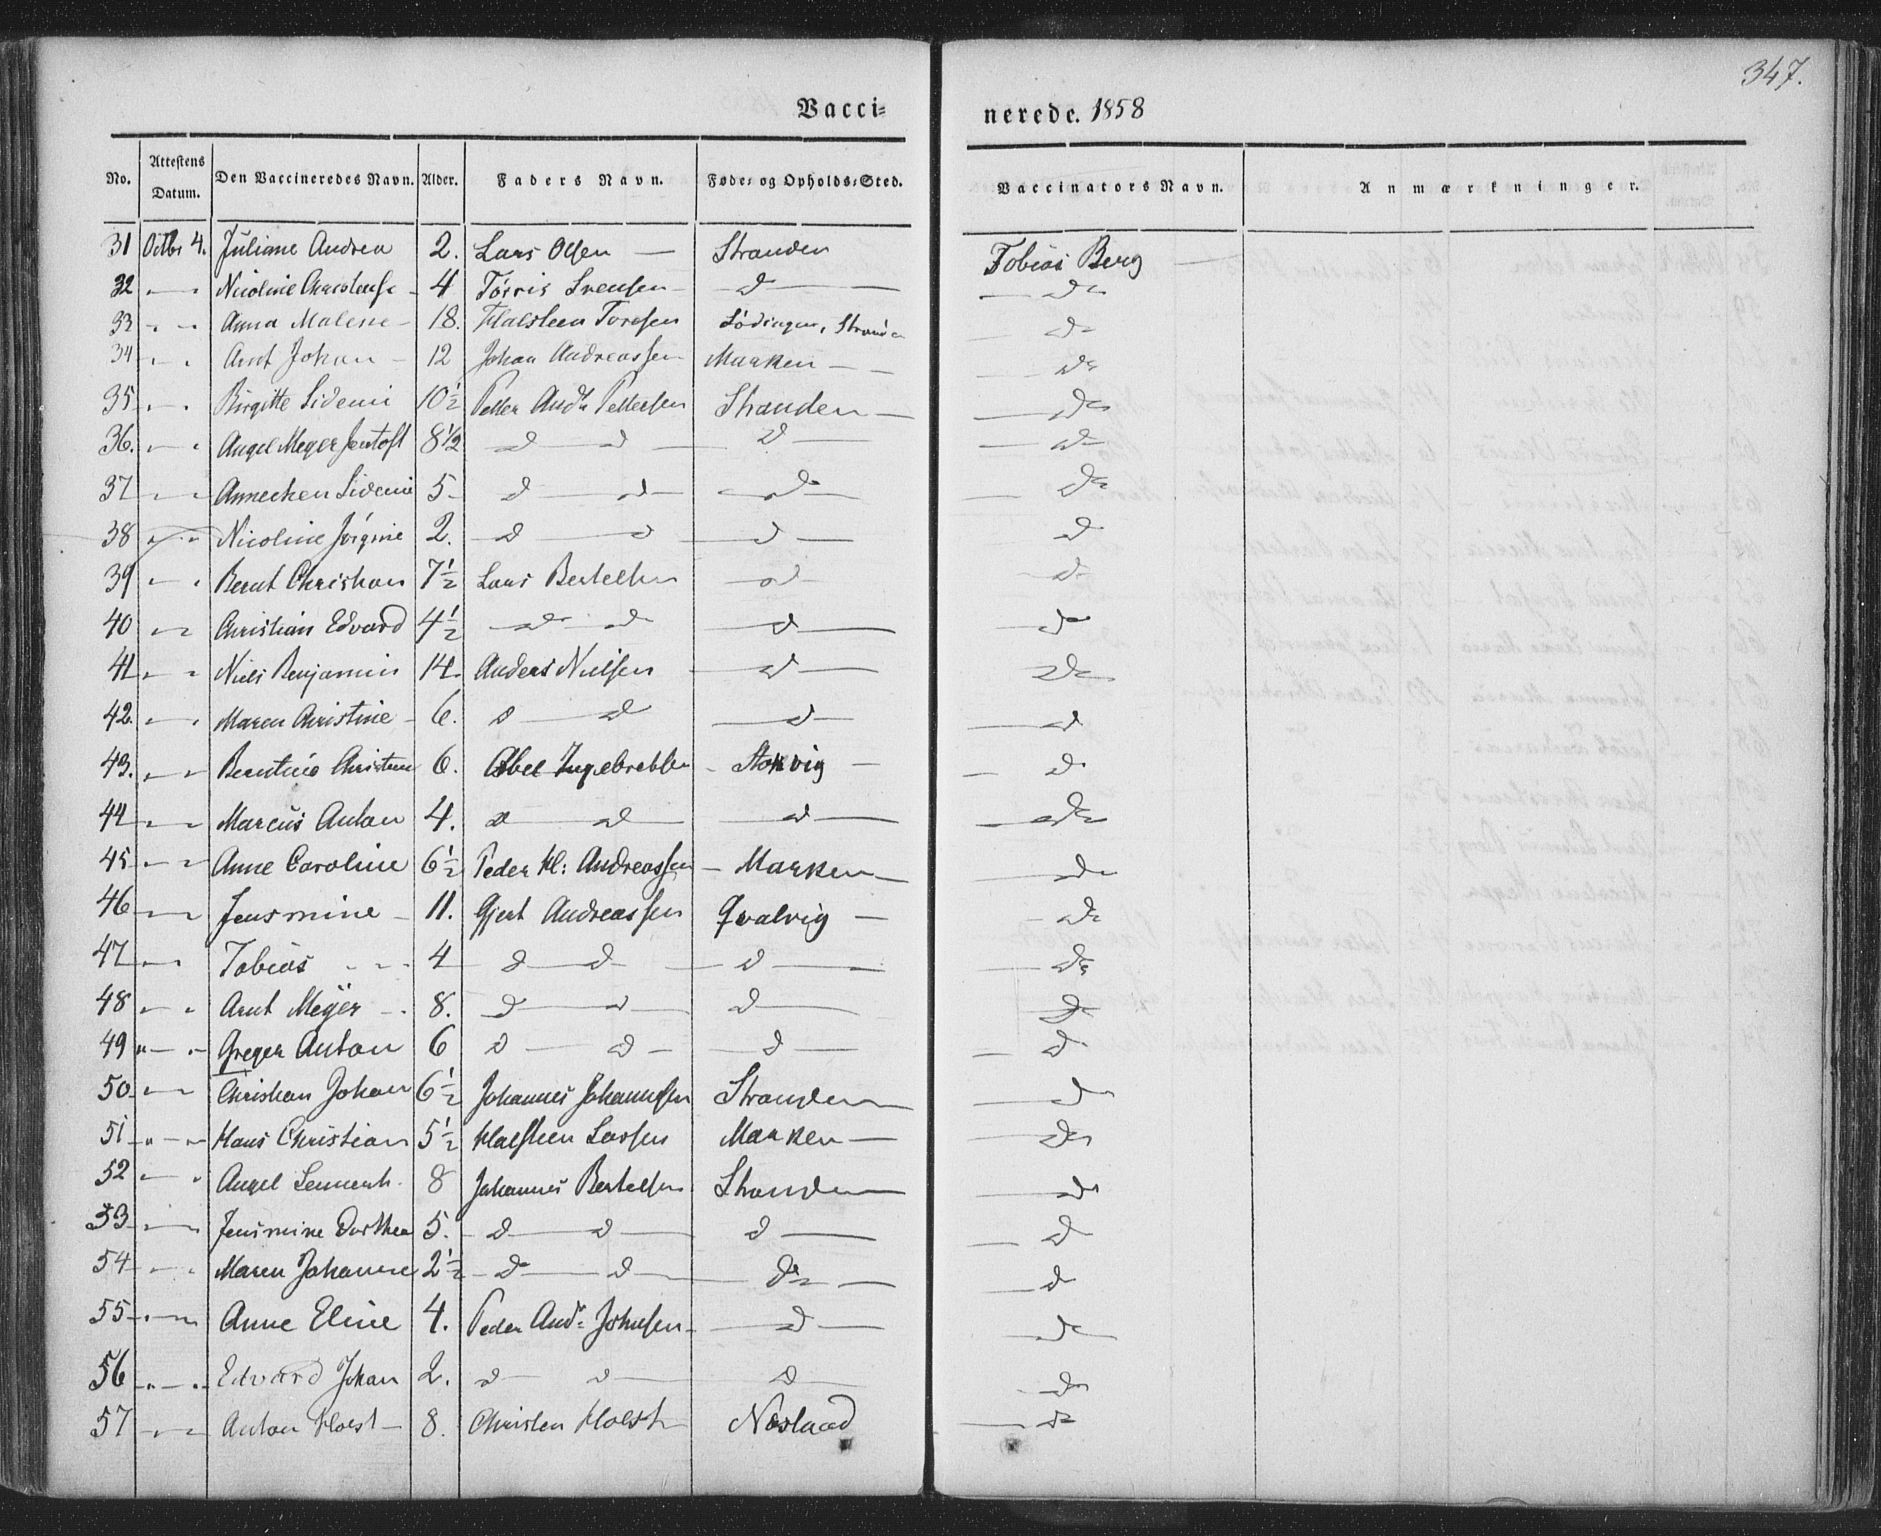 347.
Vacci= nerede. 1858
No. Attestens Datum. Den Vaccineredes Navn. Alder. Faders Navn. Føde= og Opholds=Sted. Vaccinators Navn. Anmærkninger.
31 Octbr 4. Juliane Andrea 2. Lars Olsen — Stranden Tobias Berg —
32 — " Nicoline 4 Törris Svensen — d — — do
33 " — Anna Malene — 18. Halsteen Toresen Lødingen, Stranden — do
34 " " Arnt Johan — 12 Johan Andreassen Marken — — — do
35 " — " Birgitte Sidemi 10½ Petter Andr. Pettersen Stranden — — do
36. — " Angel Meyer Jentoft 8½ — d — d — d — — do
37 " — Annechen Sidemi 5 — d — d — — do — — do
38 " " Nicoline Jörgine 2. — d — d — d — — d
39 — " Bernt Christian 7½ Lars Bertelsen — d — — d
40 — Christian Edvard 4½ — do — do — d — — do
41 — " Niels Benjamin 14. Anders Nielsen — d — — do
42. — " Maren Christine — 6. d — d — d — — d
43. " — Berntine Christine 6. Abel Ingebretsen — Stokvig — — d
44 — — Marcus Anton 4. d — d — d — — do
45 — " Anne Caroline 6½ Peder Kl: Andreassen — Marken — — do
46 — Jensmine — 11. Gjert Andreassen Qvalvig — — do
47 — Tobias — 4 — d — d — d — — do
48 — " Arnt Meÿer — 8. — d — d — d — — d
49 " — " — Greger Anton 6 d — d — d — — d
50 — Christian Johan 6½ Johannes Johannesen Stranden — — do
51 — " — Hans Christian 5½ Halsteen Larsen Marken — — do
52 — " Angel 8 Johannes Bertelsen Stranden — — do
53 — Jensmine Dorthea 5. — d — d — d — — d
54 — " Maren Johanne 2½ — do — d — do — — d
55 — " — Anne Eline 4. Peder Andr. Johnsen — d — — do
56 " — " Edvard Johan 2. d — d — d — — do
57 — " — Anton Holst — 8. Christen Holst Næsland — do